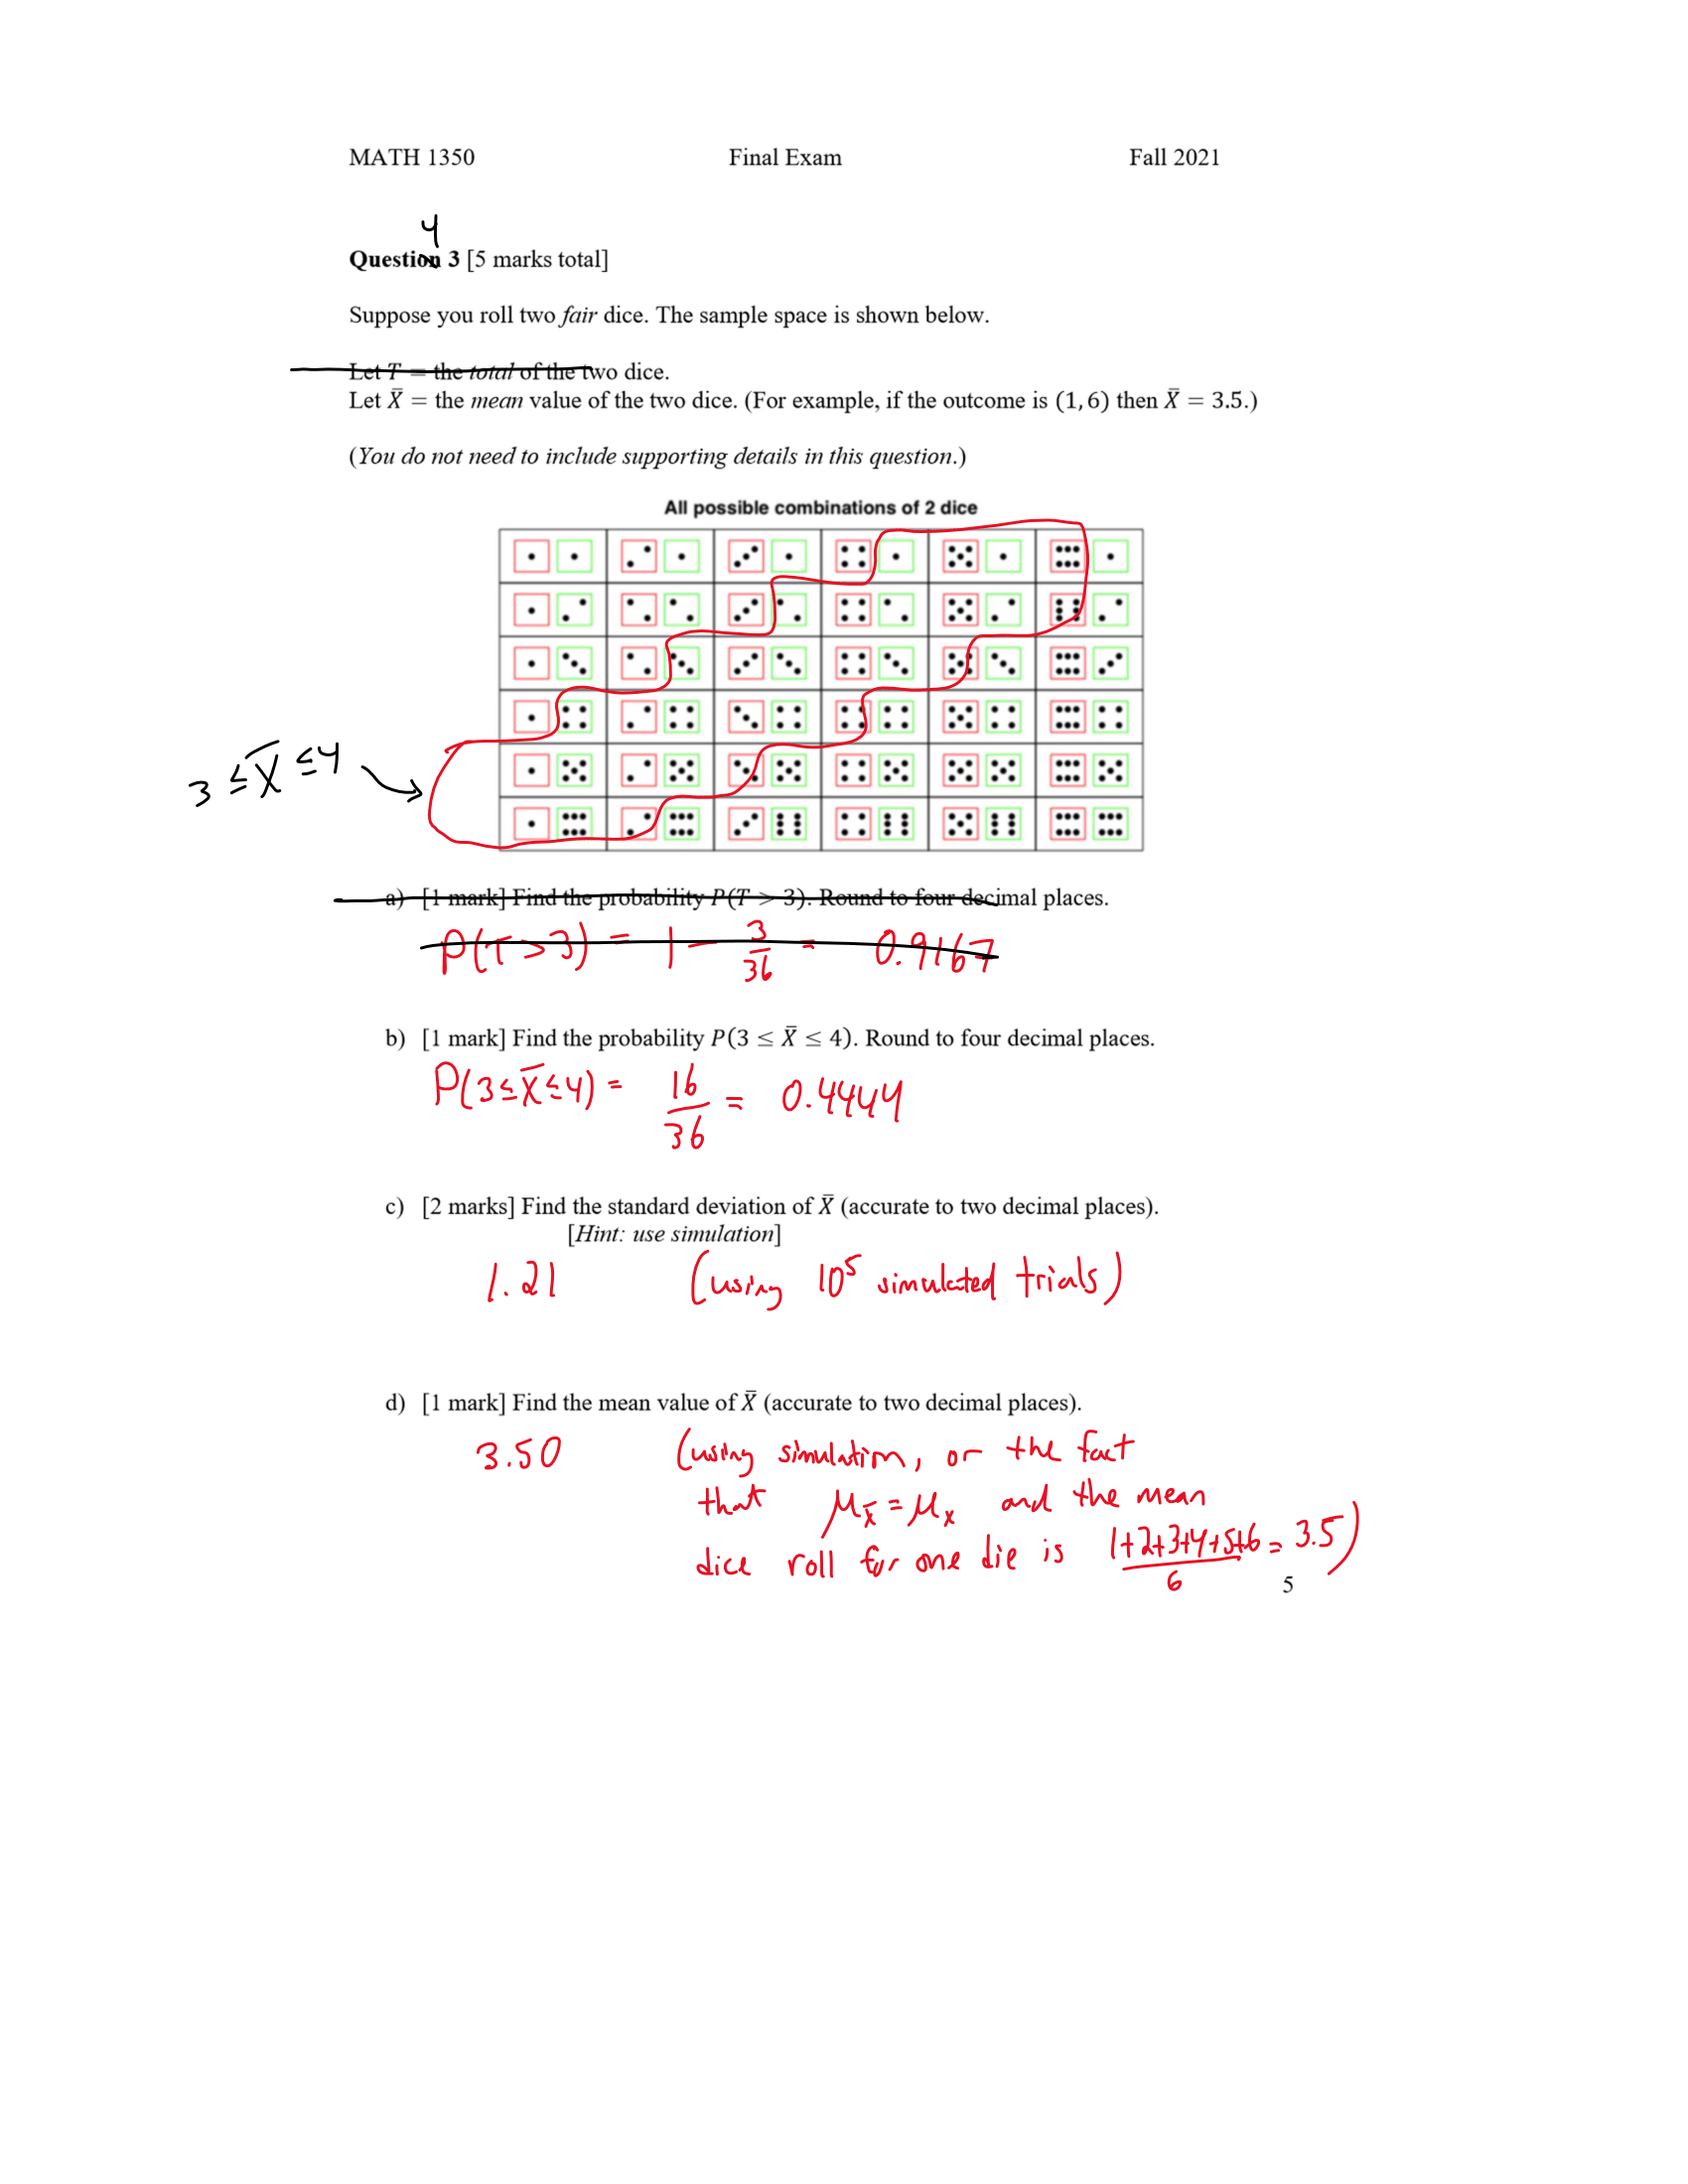 MATH 1350 Final Exam Fall 2021
4
Question 3 [5 marks total]
Suppose you roll two fair dice. The sample space is shown below.
Let T = the total of the two dice.
Let X̄ = the mean value of the two dice. (For example, if the outcome is (1, 6) then X̄ = 3.5.)
(You do not need to include supporting details in this question.)
All possible combinations of 2 dice
3 ≤ X̄ ≤ 4
a) [1 mark] Find the probability P(T > 3). Round to four decimal places.
P(T > 3) = 1 - 3/36 = 0.9167
b) [1 mark] Find the probability P(3 ≤ X̄ ≤ 4). Round to four decimal places.
P(3 ≤ X̄ ≤ 4) = 16/36 = 0.4444
c) [2 marks] Find the standard deviation of X̄ (accurate to two decimal places).
[Hint: use simulation]
1.21 (using 10⁵ simulated trials)
d) [1 mark] Find the mean value of X̄ (accurate to two decimal places).
3.50 (using simulation, or the fact
that μ_X̄ = μ_x and the mean
dice roll for one die is 1+2+3+4+5+6/6 = 3.5)
5